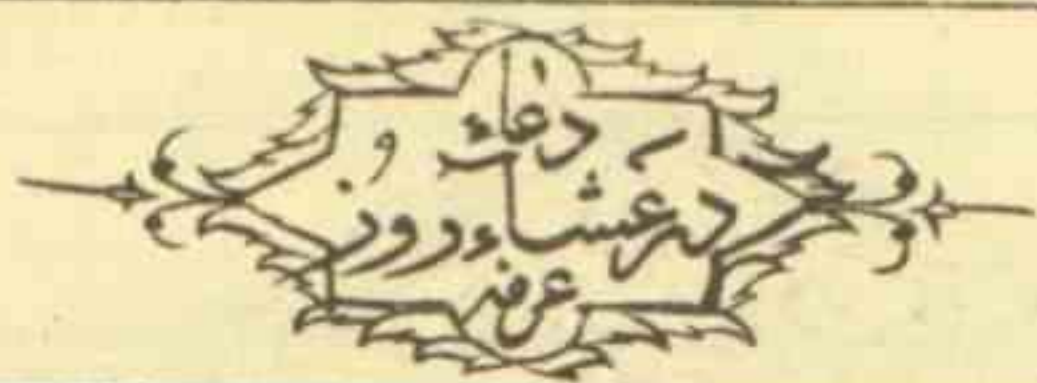 دعاء و
در عشاء روز
عرفه